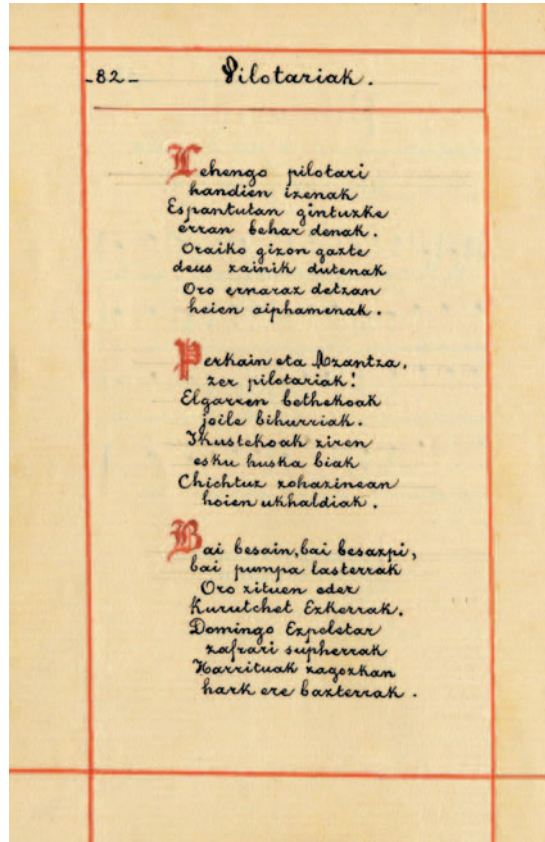 -82-
Pilotariak.
Lehengo pilotari
handien izenak
Espantutan gintuzke
erran behar denak.
Oraiko gizon gazte
deus zainik dutenak
Oro ernaraz detzan
heien aiphamenak.
Perkain eta Azantza,
zer pilotariak!
Elgarren bethekoak
joile bihurriak.
Ikustekoak ziren
esku huska biak
Chichtuz zohazinean
hoien ukhaldiak.
Bai besain, bai besazpi,
bai pumpa lasterrak
Oro zituen eder
Kurutchet Ezkerrak.
Domingo Ezpeletar
zafrari supherrak
Harrituak zagozkan
hark ere bazterrak.